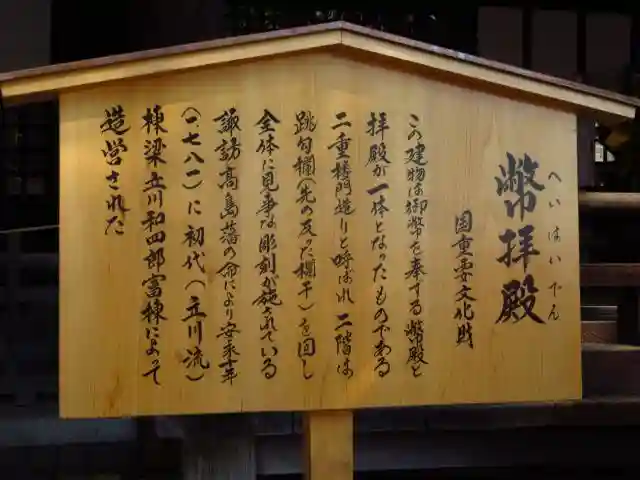 へいはいでん
幣拝殿
国重要文化財
この建物は御幣を奉する幣殿と
拝殿が一体となったものである
二重楼門造りと呼ばれ 二階は
跳勾欄(先の反った欄干)を回し
全体に見事な彫刻が施されている
諏訪高島藩の命により安永十年
(一七八一)に初代(立川流)
棟梁立川和四郎富棟によって
造営された